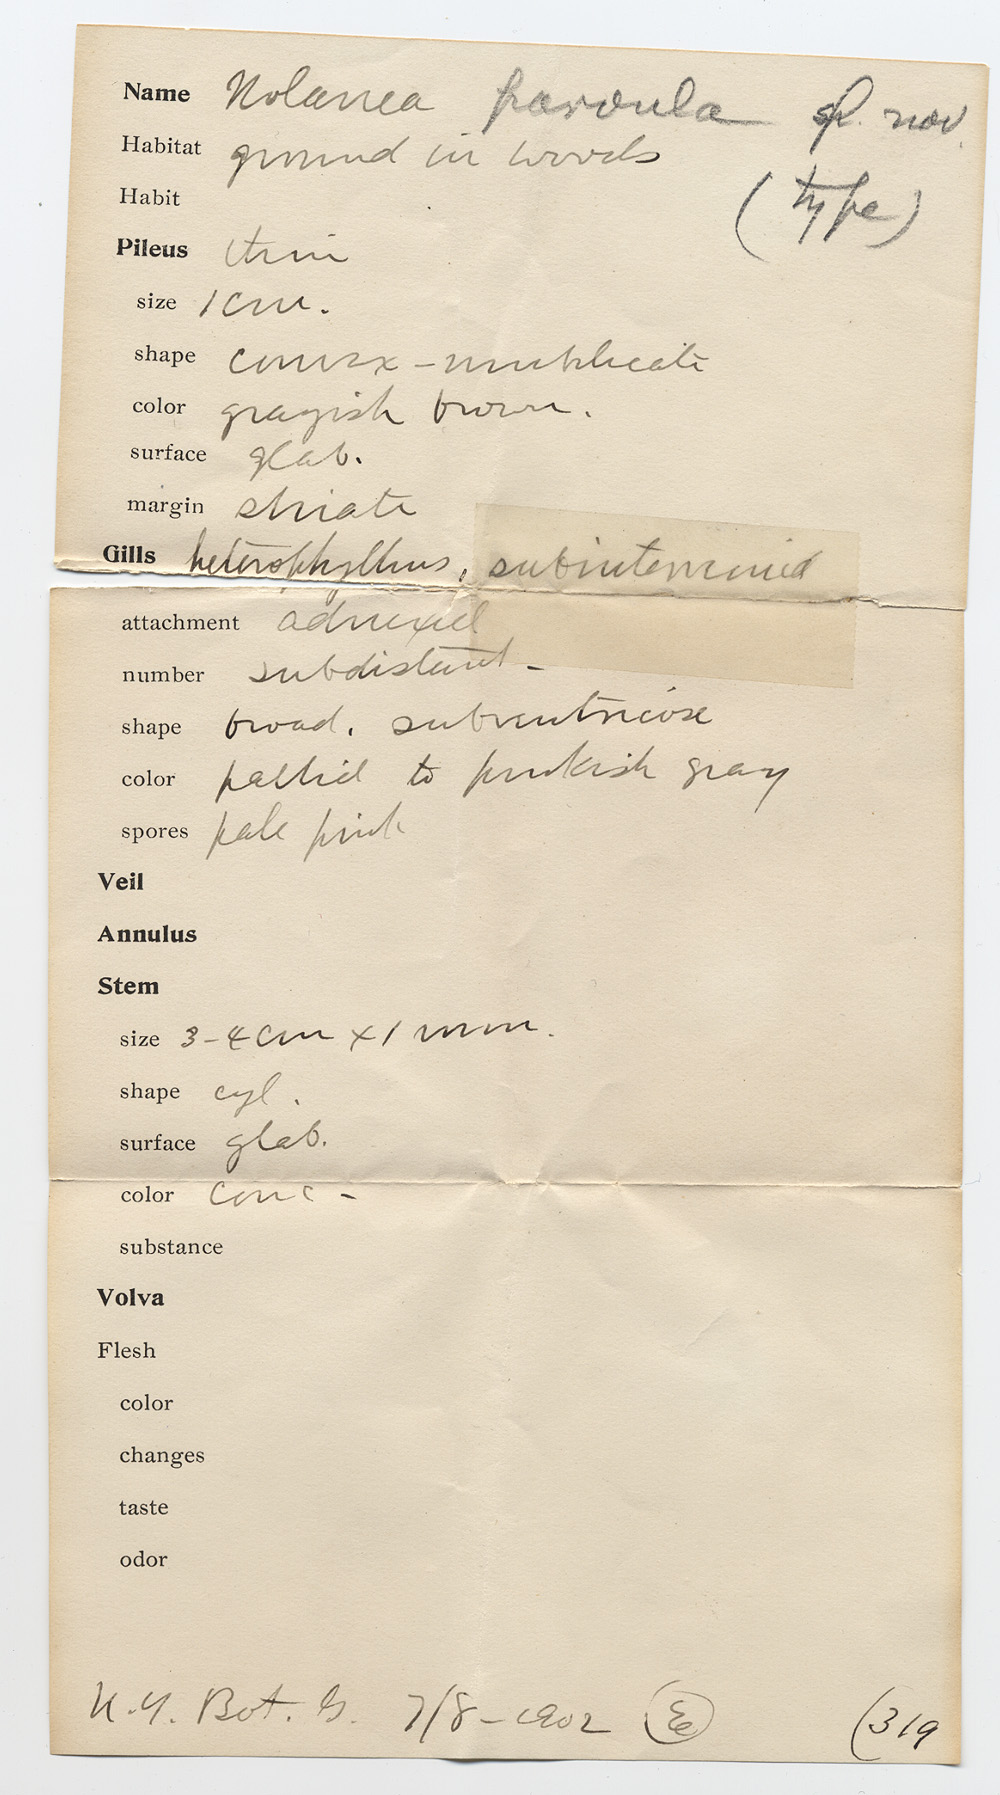 Name Nolanea parvula sp. nov.
Habitat ground in woods
(type)
Habit
Pileus thin
size 1 cm.
shape convex-umbilicate
color grayish brown.
surface glab.
margin striate
Gills heterophyllous, subintervenied
attachment adnexed
number subdistant -
shape broad, subventricose
color pallid to pinkish gray
spores pale pink
Veil
Annulus
Stem
size 3-4 cm x 1 mm.
shape cyl.
surface glab.
color conc -
substance
Volva
Flesh
color
changes
taste
odor
N.Y. Bot. G. 7/8-1902 (E) (319